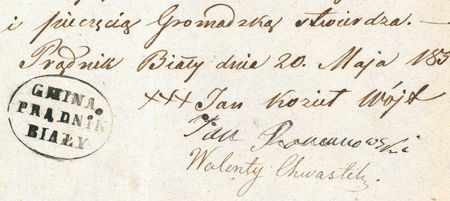 i pieczęcią Gromadzką stwierdza. —
Prądnik Biały dnia 20. Maja 183
GMINA
PRĄDNIK
BIAŁY
+++ Jan Kozieł Wójt
Jan Romanowski
Walenty Chwastek.